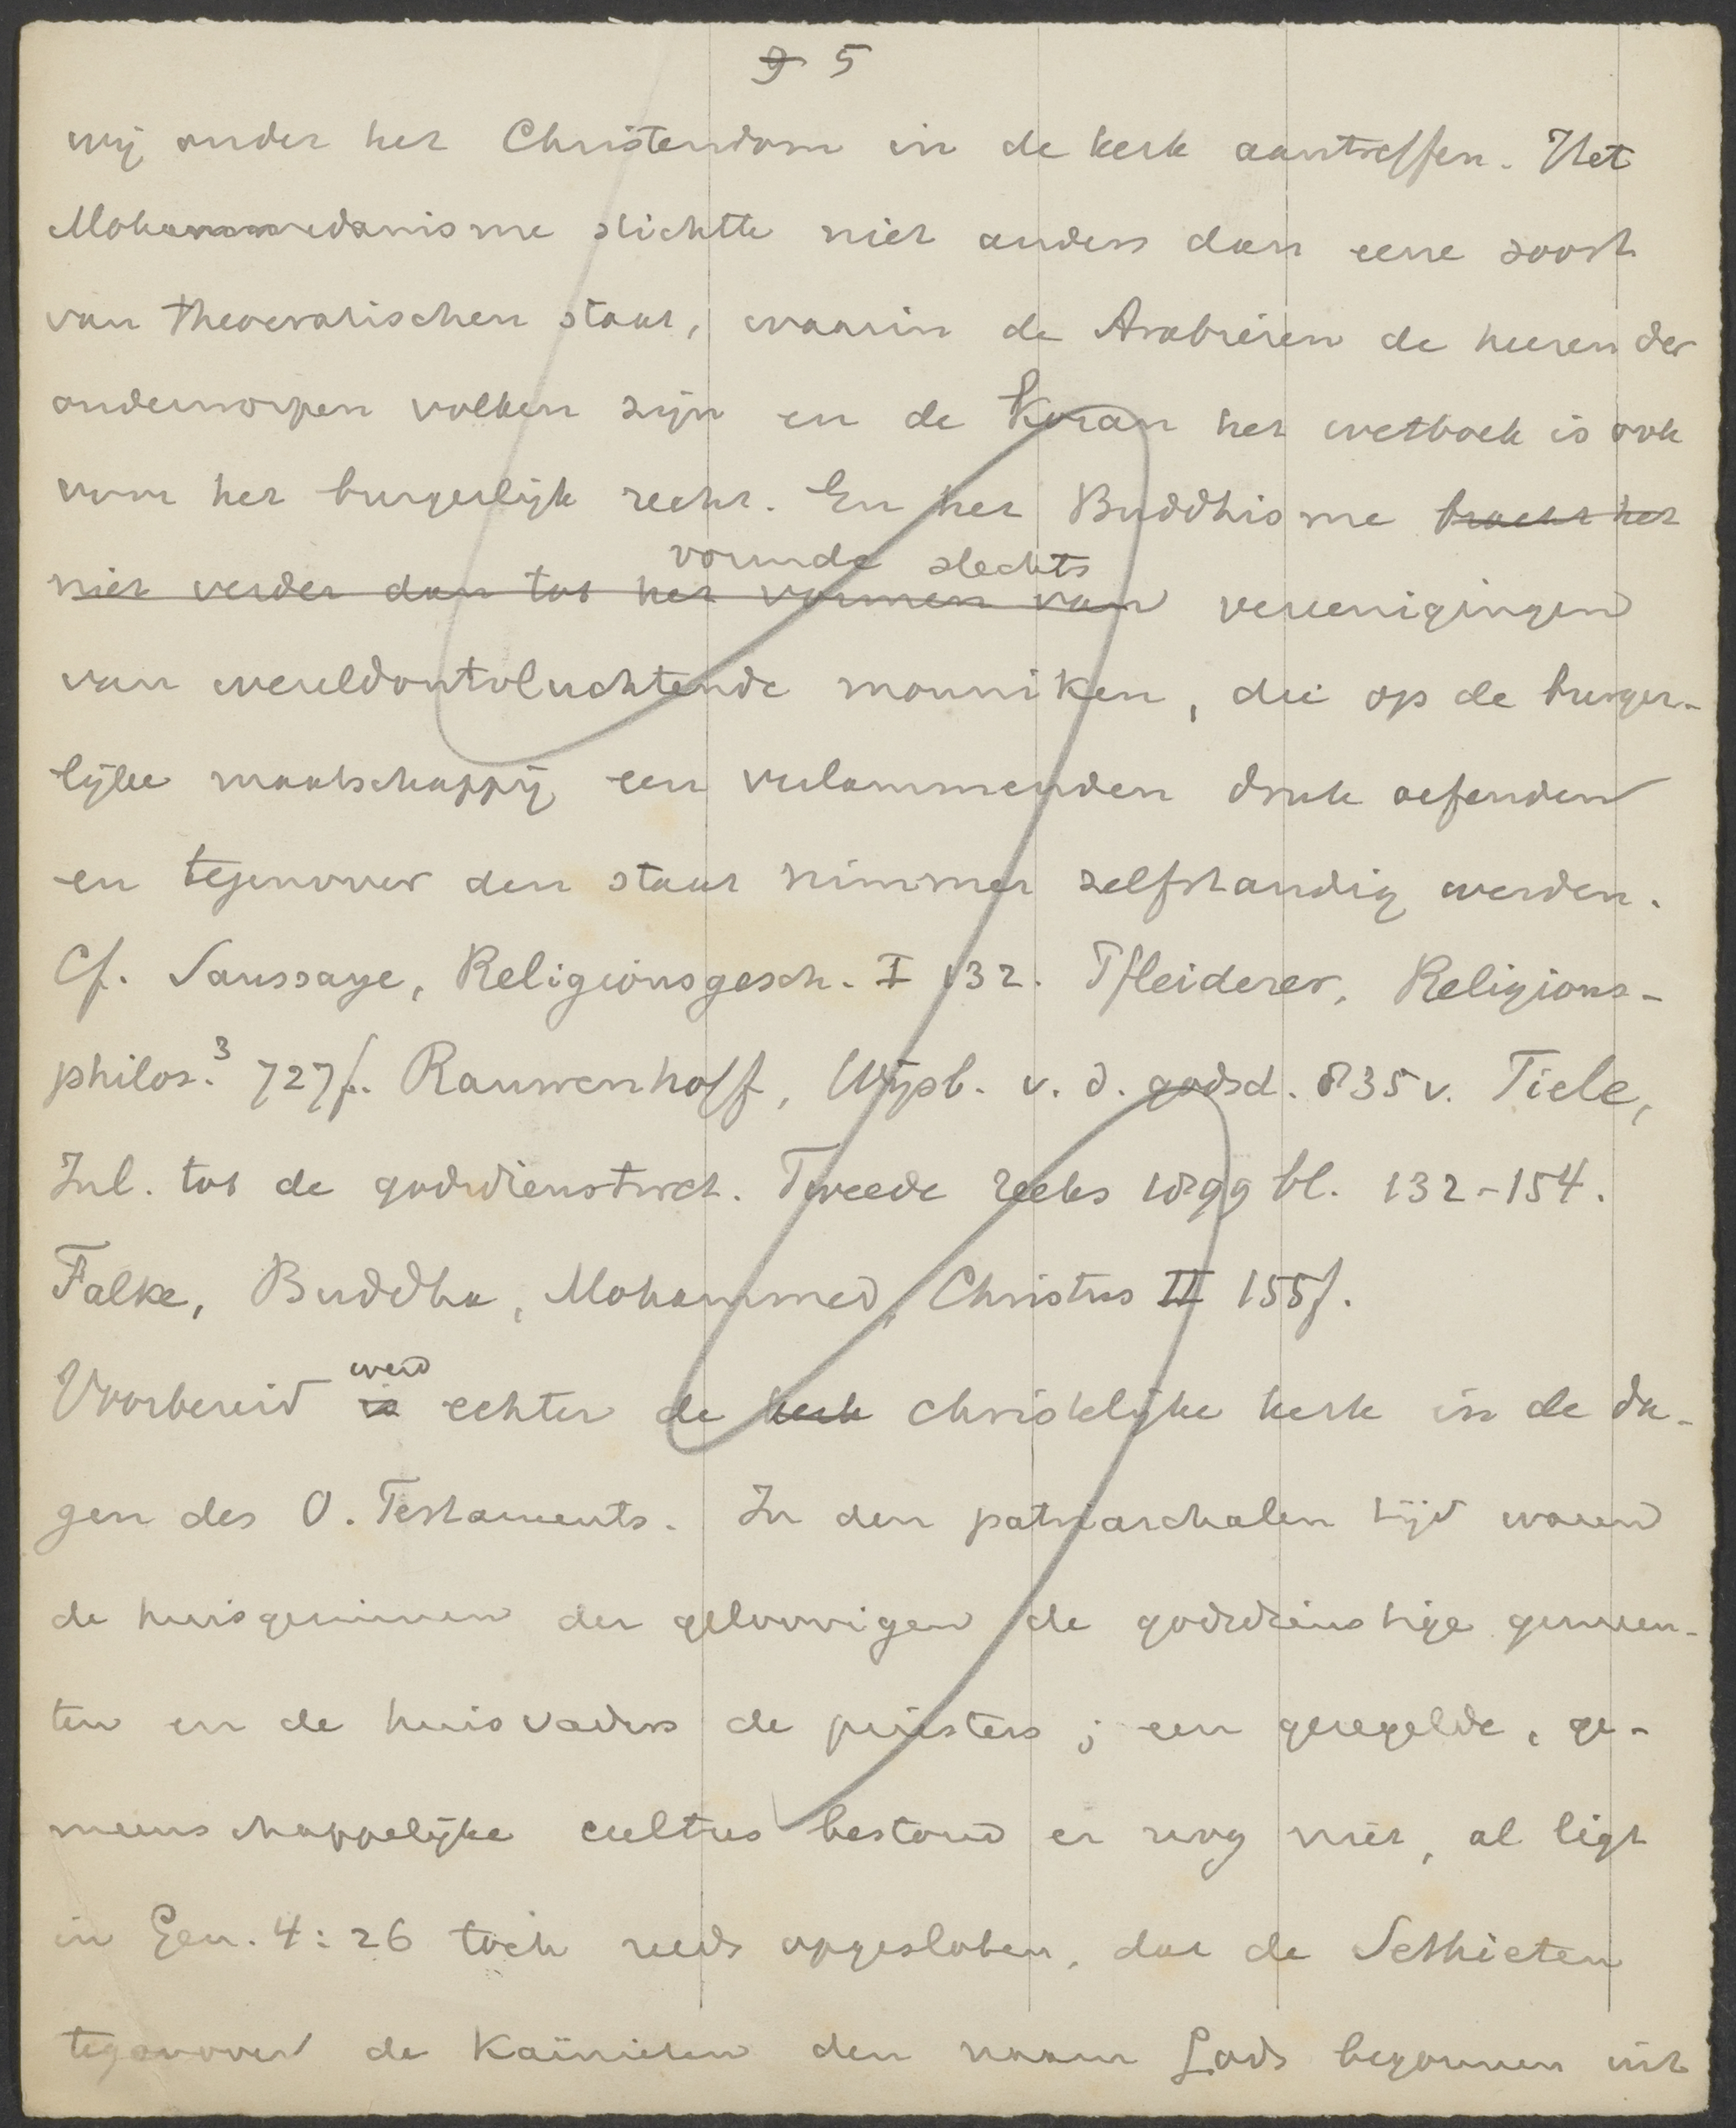 9 5
wij onder het Christendom in de kerk aantreffen. Het
Mohammedanisme stichtte niet anders dan eene soort
van theocratischen staat, waarin de Arabieren de heeren der
onderworpen volken zijn en de Koran het wetboek is ook
voor het burgerlijk recht. En het Buddhisme bracht het
vormde slechts
niet verder dan tot het vormen van vereenigingen
van wereldontvluchtende monniken, die op de burger-
lijke maatschappij een verlammenden druk oefenden
en tegenover den staat nimmer zelfstandig werden.
Cf. Saussaye, Religionsgesch. I 132. Pfleiderer, Religions-
philos.³ 727f. Rauwenhoff, Wijsb. v. d. godsd. 835 v. Tiele,
Inl. tot de godsdienstwet. Tweede reeks 1899 bl. 132-154.
Falke, Buddha, Mohammed, Christus II 155f.
werd
Voorbereid is echter de kerk christelijke kerk in de da-
gen des O. Testaments. In den patriarchalen tijd waren
de huisgezinnen der geloovigen de godsdienstige gemeen-
ten en de huisvaders de priesters; een geregelde, ge-
meenschappelijke cultus bestond er nog niet, al ligt
in Gen. 4:26 toch reeds opgesloten, dat de Sethieten
tegenover de Kaïnieten den naam Gods begonnen uit